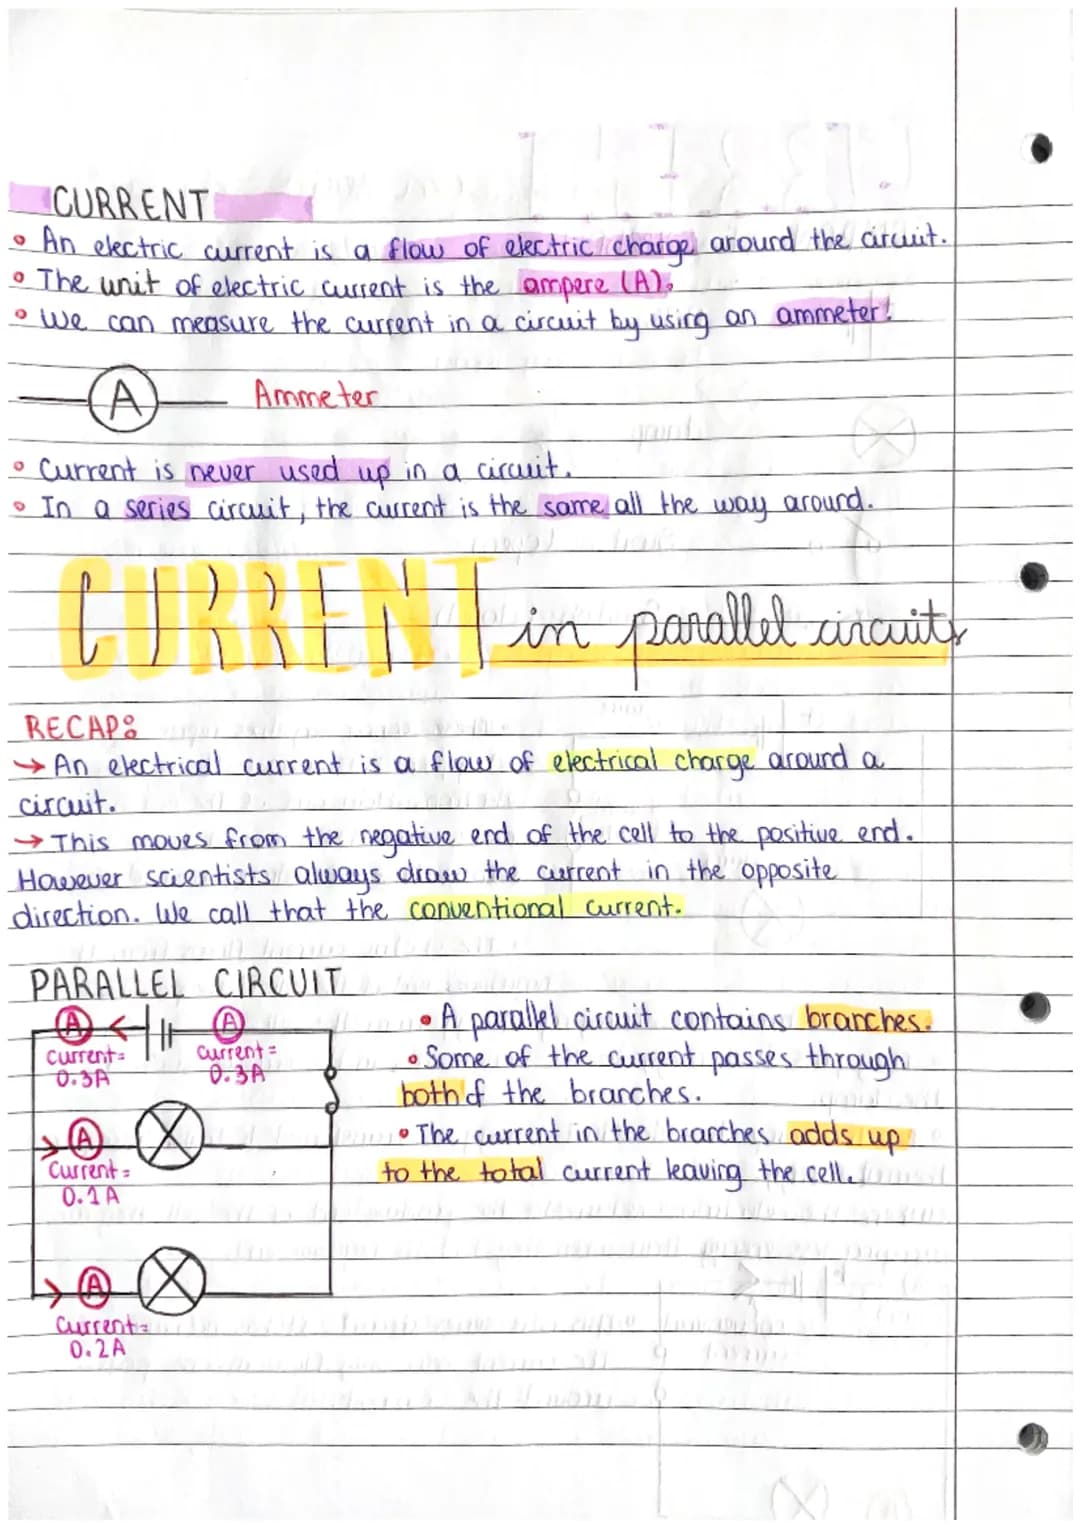 CURRENT
• An electric current is a flow of electric charge around the circuit.
• The unit of electric current is the ampere (A).
• We can measure the current in a circuit by using an ammeter!
A Ammeter
• Current is never used up in a circuit.
• In a series circuit, the current is the same all the way around.
CURRENT in parallel circuits
RECAP:
→ An electrical current is a flow of electrical charge around a
circuit.
→ This moves from the negative end of the cell to the positive end.
However scientists always draw the current in the opposite
direction. We call that the conventional current.
PARALLEL CIRCUIT
A
Current=
0.3A
A
Current=
0.3A
A
Current=
0.1A
A
Current=
0.2A
• A parallel circuit contains branches.
• Some of the current passes through
both of the branches.
• The current in the branches adds up
to the total current leaving the cell.